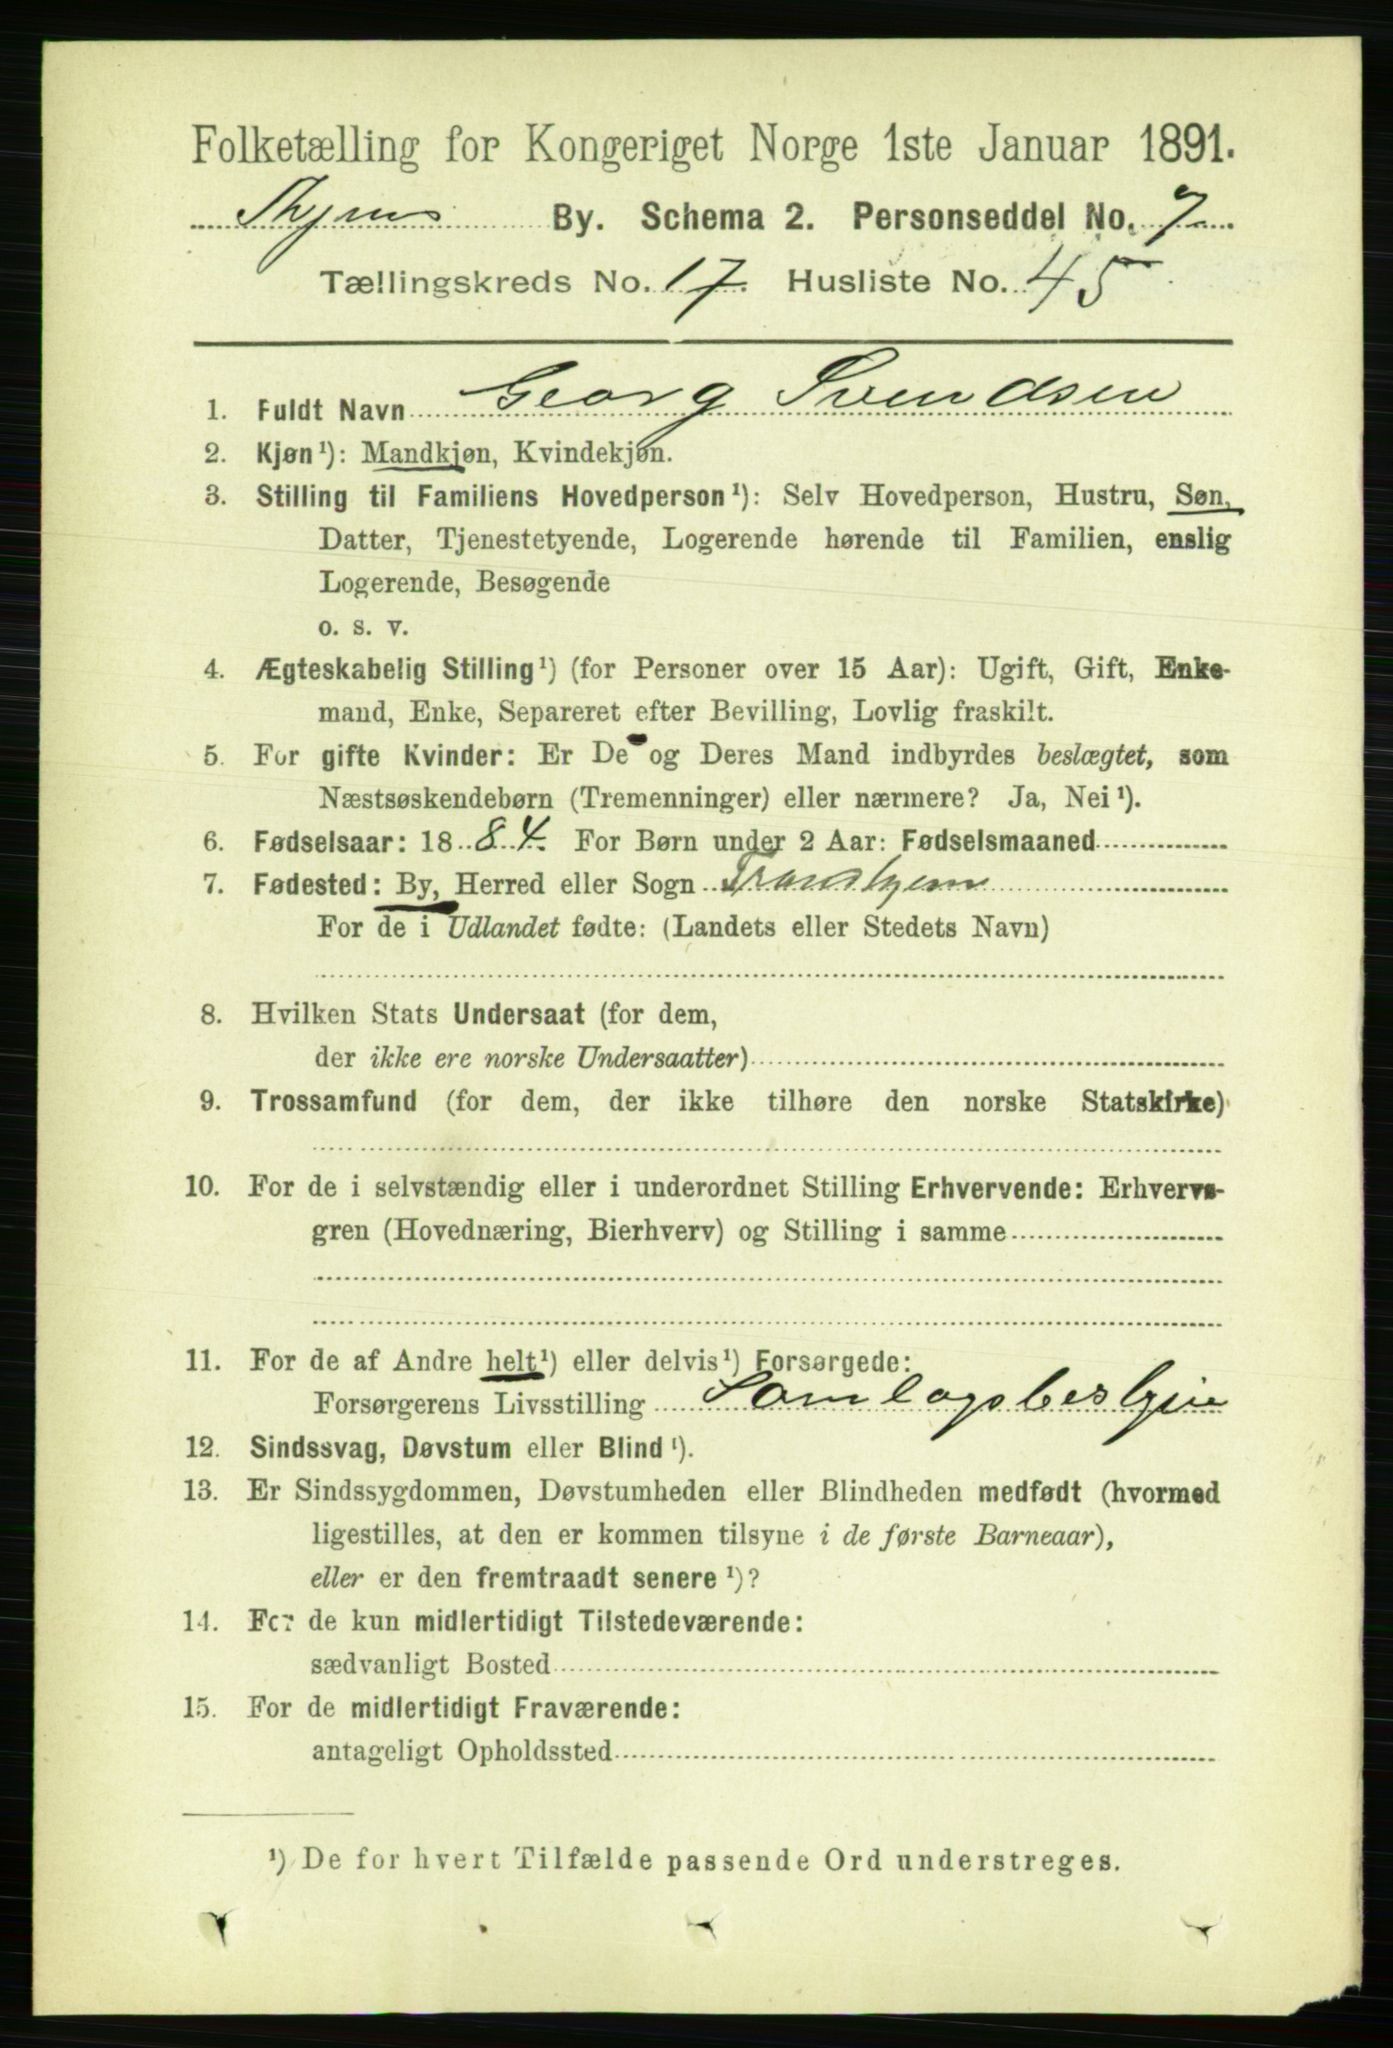 Folketælling for Kongeriget Norge 1ste Januar 1891.
Thjems By. Schema 2. Personseddel No. 7
Tællingskreds No. 17. Husliste No. 45
1. Fuldt Navn Georg Svendsen
2. Kjøn¹): Mandkjøn, Kvindekjøn.
3. Stilling til Familiens Hovedperson¹): Selv Hovedperson, Hustru, Søn,
Datter, Tjenestetyende, Logerende hørende til Familien, enslig
Logerende, Besøgende
o. s. v.
4. Ægteskabelig Stilling¹) (for Personer over 15 Aar): Ugift, Gift, Enke-
mand, Enke, Separeret efter Bevilling, Lovlig fraskilt.
5. For gifte Kvinder: Er De og Deres Mand indbyrdes beslægtet, som
Næstsøskendebørn (Tremenninger) eller nærmere? Ja, Nei¹).
6. Fødselsaar: 1884. For Børn under 2 Aar: Fødselsmaaned
7. Fødested: By, Herred eller Sogn Trondhjem
For de i Udlandet fødte: (Landets eller Stedets Navn)
8. Hvilken Stats Undersaat (for dem,
der ikke ere norske Undersaatter)
9. Trossamfund (for dem, der ikke tilhøre den norske Statskirke)
10. For de i selvstændig eller i underordnet Stilling Erhvervende: Erhvervs-
gren (Hovednæring, Bierhverv) og Stilling i samme
11. For de af Andre helt¹) eller delvis¹) Forsørgede:
Forsørgerens Livsstilling
12. Sindssvag, Døvstum eller Blind¹).
13. Er Sindssygdommen, Døvstumheden eller Blindheden medfødt (hvormed
ligestilles, at den er kommen tilsyne i de første Barneaar),
eller er den fremtraadt senere¹)?
14. For de kun midlertidigt Tilstedeværende:
sædvanligt Bosted
15. For de midlertidigt Fraværende:
antageligt Opholdssted
¹) De for hvert Tilfælde passende Ord understreges.